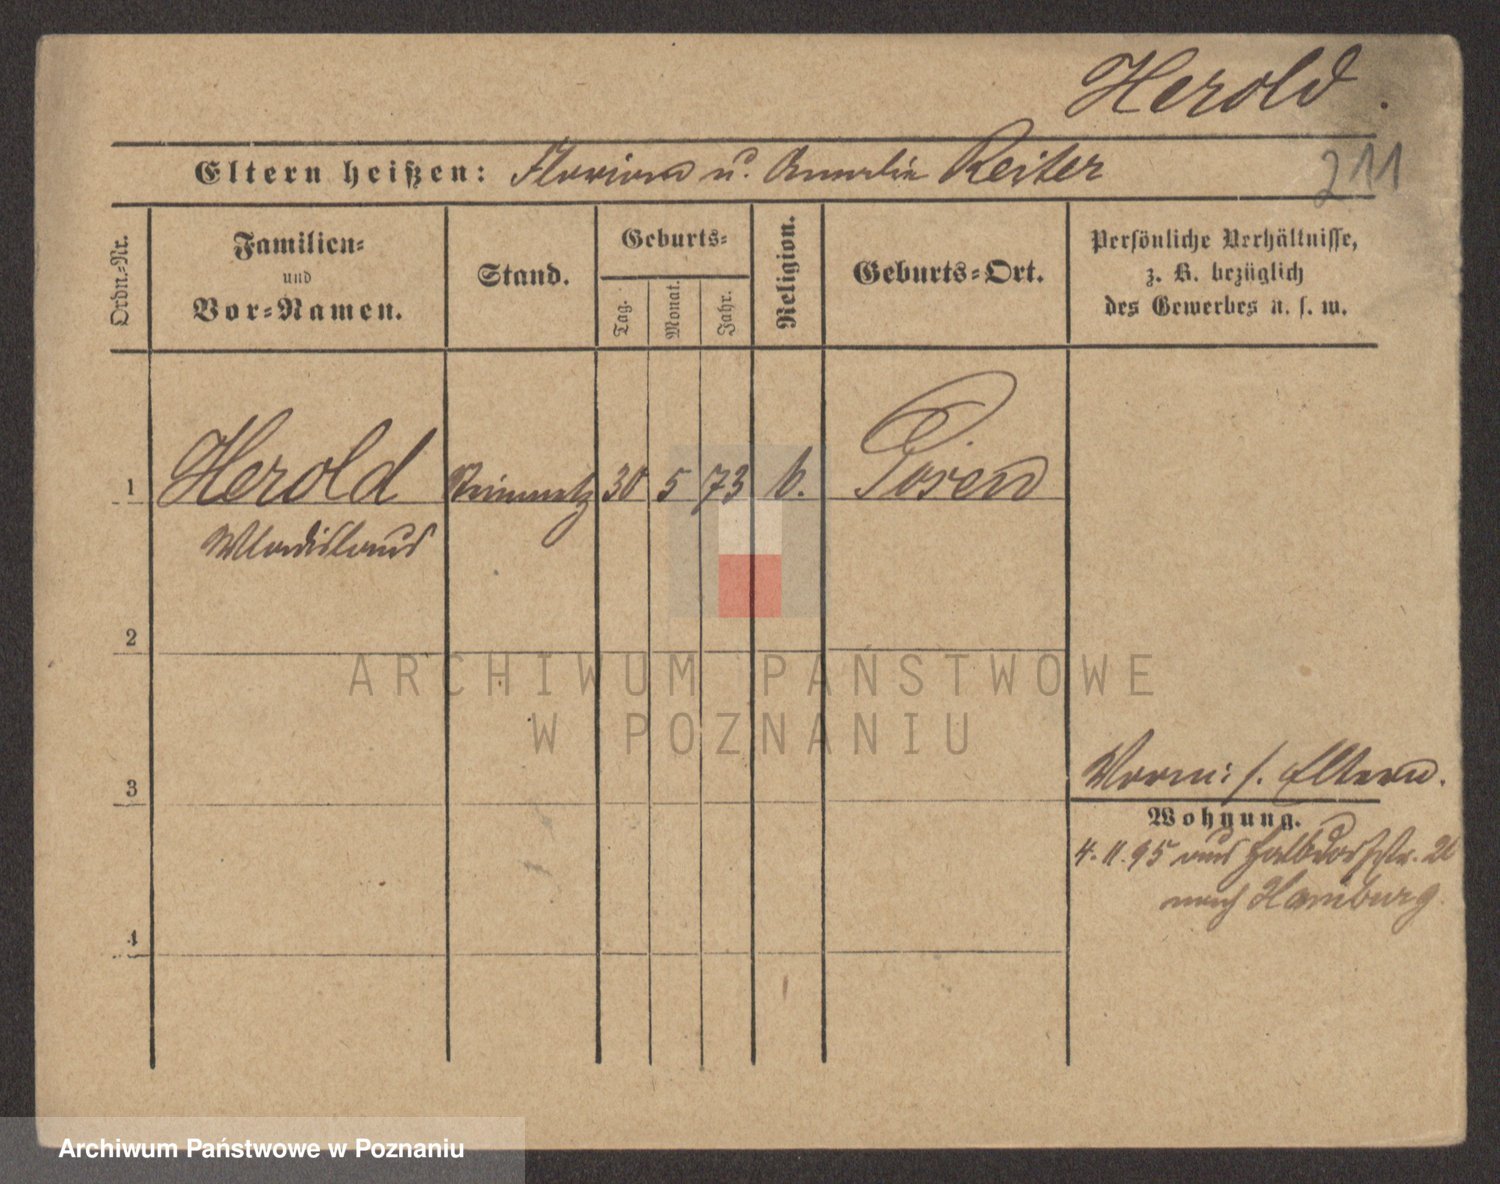 Herold.
Eltern heißen: Florian u. Amalie Reiter
211
Ordn.=Nr.
Familien=
und
Vor=Namen.
Stand.
Geburts=
Tag.
Monat.
Jahr.
Religion.
Geburts=Ort.
Persönliche Verhältnisse,
z. B. bezüglich
des Gewerbes u. s. w.
1 Herold Steinmetz 30 5 73 k. Posen
Wladislaus
2
ARCHIWUM PAŃSTWOWE
W POZNANIU
3
Vorm: s. Eltern.
Wohnung.
4. 11. 95 aus Halbdorfstr.
nach Hamburg.
4
Archiwum Państwowe w Poznaniu